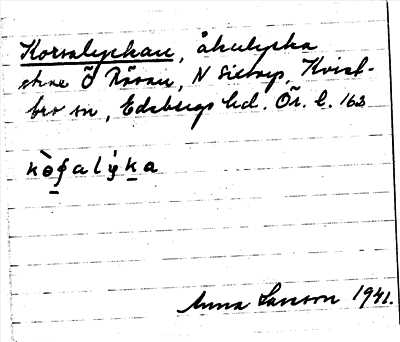 Korsalyckan, åkulycka
Ö Råsan, N Sietorp, Kvist-
bro sn, Edsbergs hd. Ör. l. 163
kòʂalýka
Anna Larsson 1941.